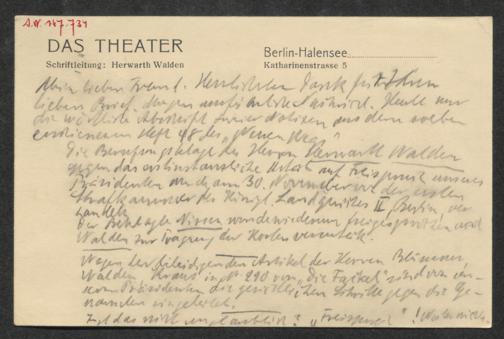 A.N. 147.734
DAS THEATER
Schriftleitung: Herwarth Walden
Berlin-Halensee
Katharinenstrasse 5
Mein lieber Freund. Herzlichsten Dank für Ihren
lieben Brief, dessen ausführliche Antwort. Heute nur
die wörtliche Abschrift zweier Notizen aus dem soeben
erschienenen Heft 48 des „Neuen Wegs"
Die Berufungsklage des Herrn Herwarth Walden
gegen das erstinstanzliche Urteil auf Freispruch unseres
Präsidenten am 30. November vor der ersten
Strafkammer des Königl. Landgerichtes II Berlin ver
handelt.
Der Beklagte Nissen wurde wiederum freigesprochen und
Walden zur Tragung der Kosten verurteilt.
Wegen der beleidigenden Artikel der Herren Blümner,
Walden, Kraus in No 290 von „Die Fackel" sind von un-
serm Präsidenten die gerichtlichen Schritte gegen die Ge-
nannten eingeleitet.
Ist das nicht unglaublich? „Freispruch"!